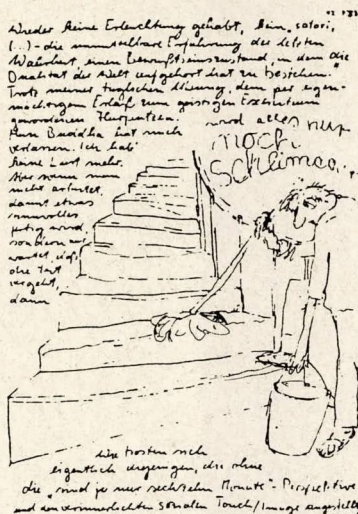 Wieder keine Erleuchtung gehabt, kein "satori,
(...) - die unmittelbare Erfahrung der letzten
Wahrheit, einen Bewußtseinszustand, in dem die
Dualität der Welt aufgehört hat zu bestehen."
Trotz meiner täglichen Übung, dem per eigen-
mächtigen Erlaß zum geistigen Exerzitium
gewordenen Herputzen.
Der Buddha hat mich
verlassen. Ich hab'
keine Lust mehr.
Wenn man
nicht arbeitet,
damit etwas
sinnvolles
fertig wird
sondern nur
wartet, daß
die Zeit
vergeht,
dann
wird alles nur
noch
Schlimmer.
Wie trösten sich
eigentlich diejenigen, die ohne
die "sind ja nur sechzehn Monate"-Perspektive
und den verinnerlichten sozialen Touch/Image angestellt